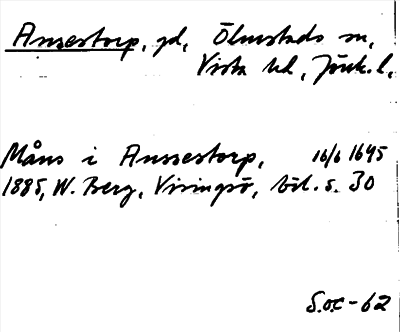 Anserstorp, gd, Ölmstads sn,
Vista hd, Jönk. l.
Måns i Anssestorp, 16/6 1645
1885, W. Berg, Visingsö, bil. s. 30
S.o.c - 62